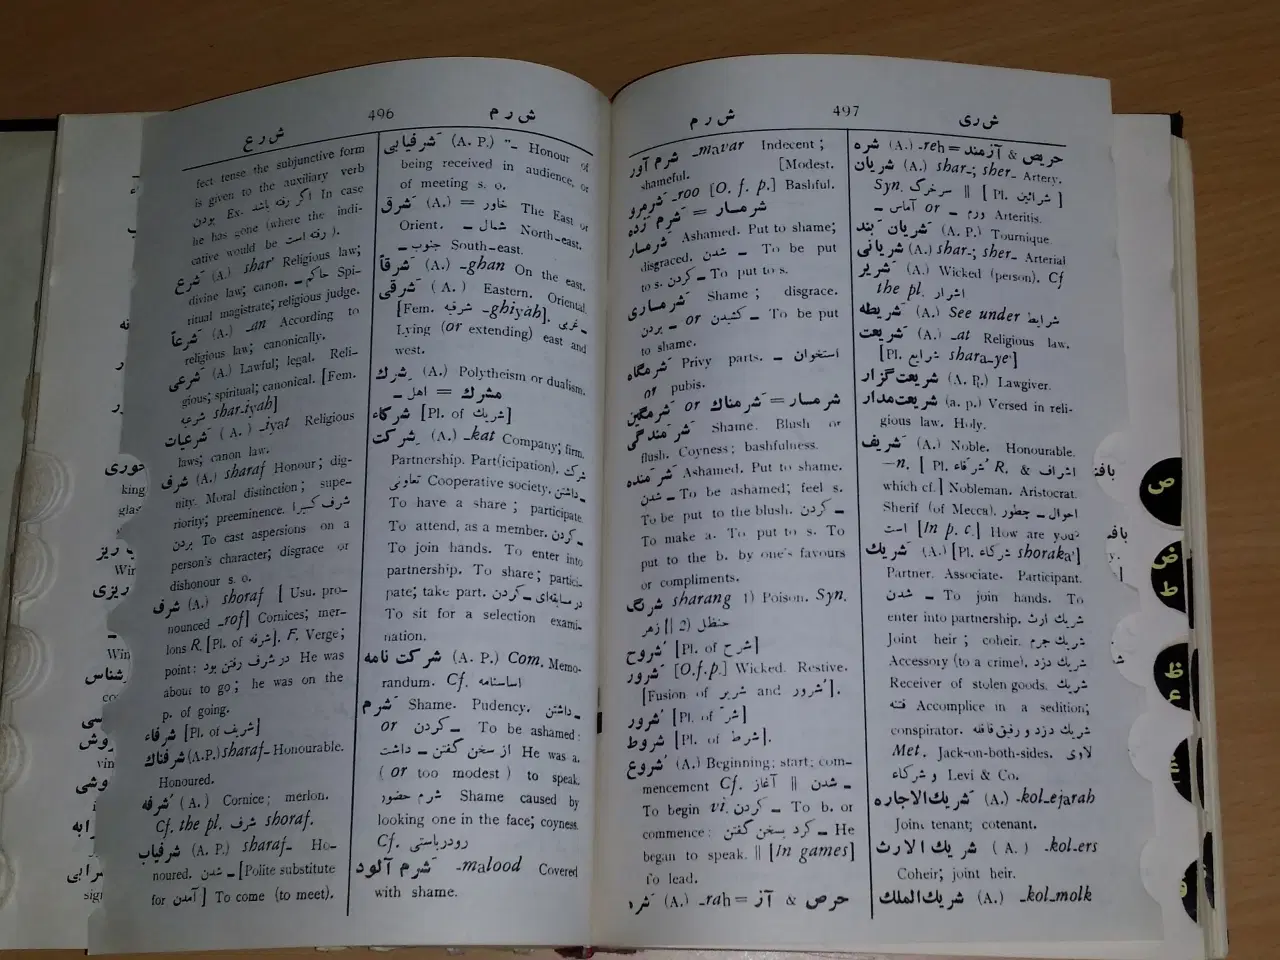 ش ر ع
496
ش ر م
fect tense the subjunctive form
is given to the auxiliary verb
بودن Ex. اگر رفته باشد In case
he has gone (where the indi-
cative would be رفته است ).
شرع (A.) shar' Religious law;
divine law; canon. ـ حاکم Spi-
ritual magistrate; religious judge.
شرعاً (A.) -an According to
religious law; canonically.
شرعی (A.) Lawful; legal. Reli-
gious; spiritual; canonical. [Fem.
شرعیه shar-iyah]
شرعیات (A.) -iyat Religious
laws; canon law.
شرف (A.) sharaf Honour; dig-
nity. Moral distinction; supe-
riority; preeminence. شرف کسیرا
بردن To cast aspersions on a
person's character; disgrace or
dishonour s. o.
شرف (A.) shoraf [Usu. pro-
nounced -rof] Cornices; mer-
lons R. [Pl. of شرفه]. F. Verge;
point: در شرف رفتن بود He was
about to go; he was on the
p. of going.
شرفاء [Pl. of شریف]
شرفناک (A.P.) sharaf- Honourable.
Honoured.
شرفه (A.) Cornice; merlon.
Cf. the pl. شرف shoraf.
شرفیاب (A. P.) sharaf- Ho-
noured. ـ شدن [Polite substitute
for آمدن] To come (to meet).
شرفیابی (A. P.) "- Honour of
being received in audience, or
of meeting s. o.
شرق (A.) = خاور The East or
Orient. ـ شمال North-east.
ـ جنوب South-east.
شرقاً (A.) -ghan On the east.
شرقی (A.) Eastern. Oriental
[Fem. شرقیه -ghiyah]. ـ غربی
Lying (or extending) east and
west.
شرک (A.) Polytheism or dualism.
ـ اهل = مشرک
شرکاء [Pl. of شریک]
شرکت (A.) -kat Company; firm.
Partnership. Part(icipation). شرکت
تعاونی Cooperative society. ـ داشتن
To have a share; participate.
To attend, as a member. ـ کردن
To join hands. To enter into
partnership. To share; partici-
pate; take part. در مسابقه‌ای ـ کردن
To sit for a selection exami-
nation.
شرکت نامه (A. P.) Com. Memo-
randum. Cf. اساسنامه
شرم Shame. Pudency. ـ داشتن
or ـ کردن To be ashamed:
از سخن گفتن ـ داشت He was a.
(or too modest) to speak.
شرم حضور Shame caused by
looking one in the face; coyness.
Cf. رودرباستی
شرم آلود -malood Covered
with shame.
ش ر م
497
ش ر ی
شرم آور -mavar Indecent;
shameful. [Modest.
شرمرو -roo [O. f. p.] Bashful.
شرم زده = شرمسار
شرمسار Ashamed. Put to shame;
disgraced. ـ شدن To be put
to s. ـ کردن To put to s.
شرمساری Shame; disgrace.
ـ بردن or ـ کشیدن To be put
to shame.
شرمگاه Privy parts. ـ استخوان
or pubis.
شرمگین or شرمناک = شرمسار
شرمندگی Shame. Blush or
flush. Coyness; bashfulness.
شرمنده Ashamed. Put to shame.
ـ شدن To be ashamed; feel s.
To be put to the blush. ـ کردن
To make a. To put to s. To
put to the b. by one's favours
or compliments.
شرنگ sharang 1) Poison. Syn.
زهر || 2) حنظل
شروح [Pl. of شرح]
شرور [O.f.p.] Wicked. Restive.
[Fusion of شریر and شرور].
شرور [Pl. of شر]
شروط [Pl. of شرط].
شروع (A.) Beginning; start; com-
mencement Cf. آغاز || ـ شدن
To begin vi. ـ کردن To b. or
commence: ـ کرد بسخن گفتن He
began to speak. || [In games]
To lead.
شره (A.) -rah = حرص & آز
شره (A.) -reh = حریص & آزمند
شریان (A.) shar-; sher- Artery.
Syn. سرخرگ || [Pl. شرائین]
ـ آماس or ـ ورم Arteritis.
شریان بند (A. P.) Tournique.
شریانی (A.) shar-; sher- Arterial
شریر (A.) Wicked (person). Cf
the pl. اشرار
شریطه (A.) See under شرایط
شریعت (A.) -at Religious law.
[Pl. شرایع shara-ye']
شریعت گزار (A. P.) Lawgiver.
شریعت‌مدار (a. p.) Versed in reli-
gious law. Holy.
شریف (A.) Noble. Honourable.
—n. [Pl. شرفاء R. & اشراف
which cf.] Nobleman. Aristocrat.
Sherif (of Mecca). احوال ـ چطور
است [In p. c.] How are you?
شریک (A.) [Pl. شرکاء shoraka']
Partner. Associate. Participant.
ـ شدن To join hands. To
enter into partnership. شریک ارث
Joint heir; coheir. شریک جرم
Accessory (to a crime). شریک دزد
Receiver of stolen goods. شریک
فتنه Accomplice in a sedition;
conspirator. شریک دزد و رفیق قافله
Met. Jack-on-both-sides. لاوی
و شرکاء Levi & Co.
شریک الاجاره (A.) -kol-ejarah
Joint tenant; cotenant.
شریک الارث (A.) -kol-ers
Coheir; joint heir.
شریک الملک (A.) -kol-molk